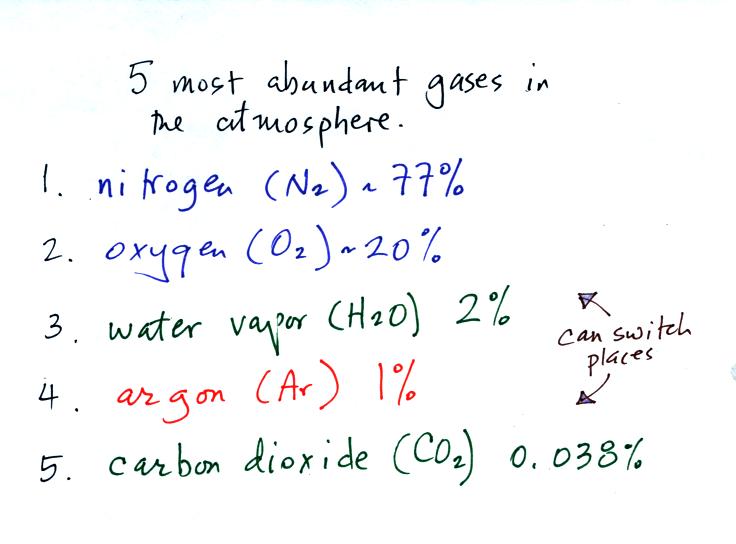 5 most abundant gases in
the atmosphere.
1. nitrogen (N2) ~ 77%
2. oxygen (O2) ~ 20%
3. water vapor (H2O) 2%
can switch
places
4. argon (Ar) 1%
5. carbon dioxide (CO2) 0.038%